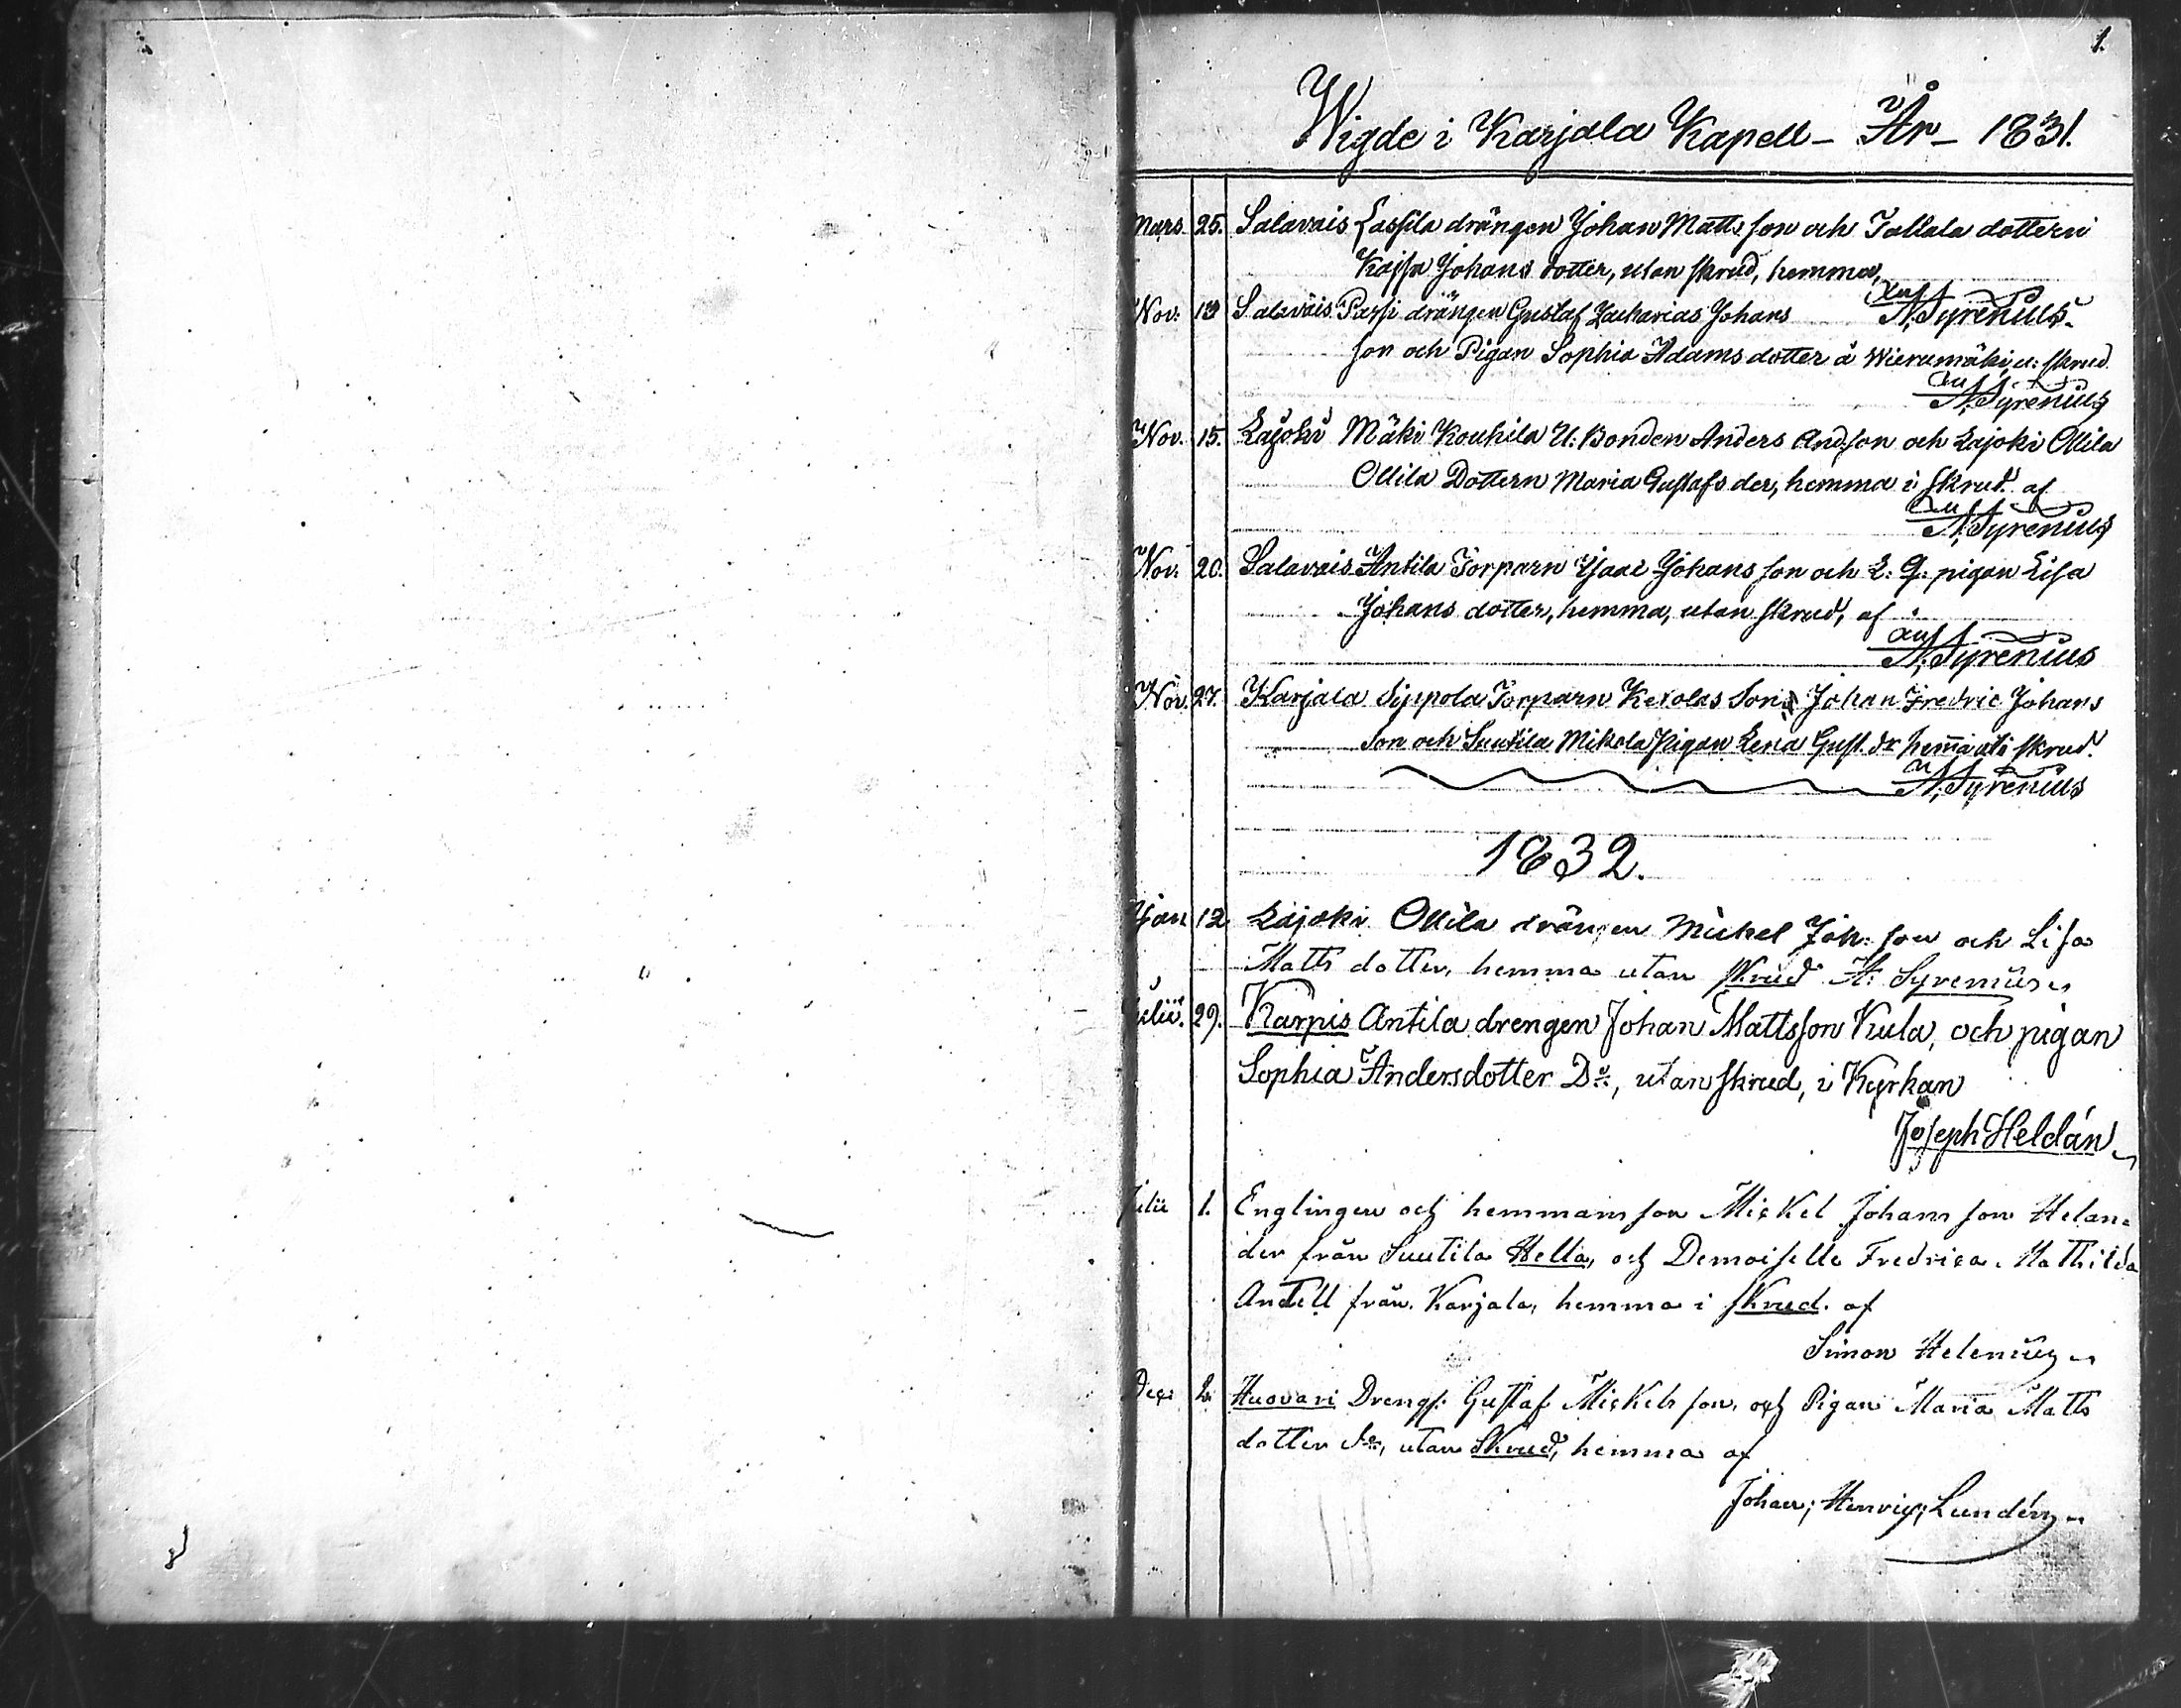 1.
Wigde i Karjala Kapell - År - 1831.
Mars 25. Salavais Lassila drängen Johan Matts son och Tallala dottern
Kajsa Johans dotter, utan skrud, hemma,
Nov: 13 Salavais Passi drängen Gustaf Zacharias Johans A. Syrenius.
son och Pigan Sophia Adams dotter å Wierumäki, u: skrud.
A. Syrenius
Nov. 15. Lajoki Mäki Kouhila U: Bonden Anders And:son och Lajoki Ollila
Ollila Dottern Maria Gustafs der, hemma i skrud. af
A. Syrenius
Nov: 20. Salavais Antila Torparn Isaac Johans son och L: G: pigan Lisa
Johans dotter, hemma, utan skrud, af
A. Syrenius
Nov. 27. Karjala Sippola Torparn Kexolas Son Johan Fredric Johans
Son och Suutila Mikola Pigan Lena Gust. dr hem̃a uti skrud.
A. Syrenius
1832.
Jan 12. Lajoki Ollila drängen Michel Joh: son och Lisa
Matts dotter, hemma utan skrud A: Syrenius
Julii. 29. Karpis Antila drengen Johan Mattsson Kula, och pigan
Sophia Andersdotter Do:, utan skrud, i Kyrkan
Joseph Heldán
Julii 1. Englingen och hemmans son Mickel Johans son Helan=
der från Suutila Hella, och Demoiselle Fredrica Mathilda
Antell från Karjala, hemma i skrud. af
Simon Helenius
Dec: 2. Huovari Dreng: Gustaf Mickels son, och Pigan Maria Matts
dotter do, utan Skrud, hemma af
Johan; Henric; Lundén